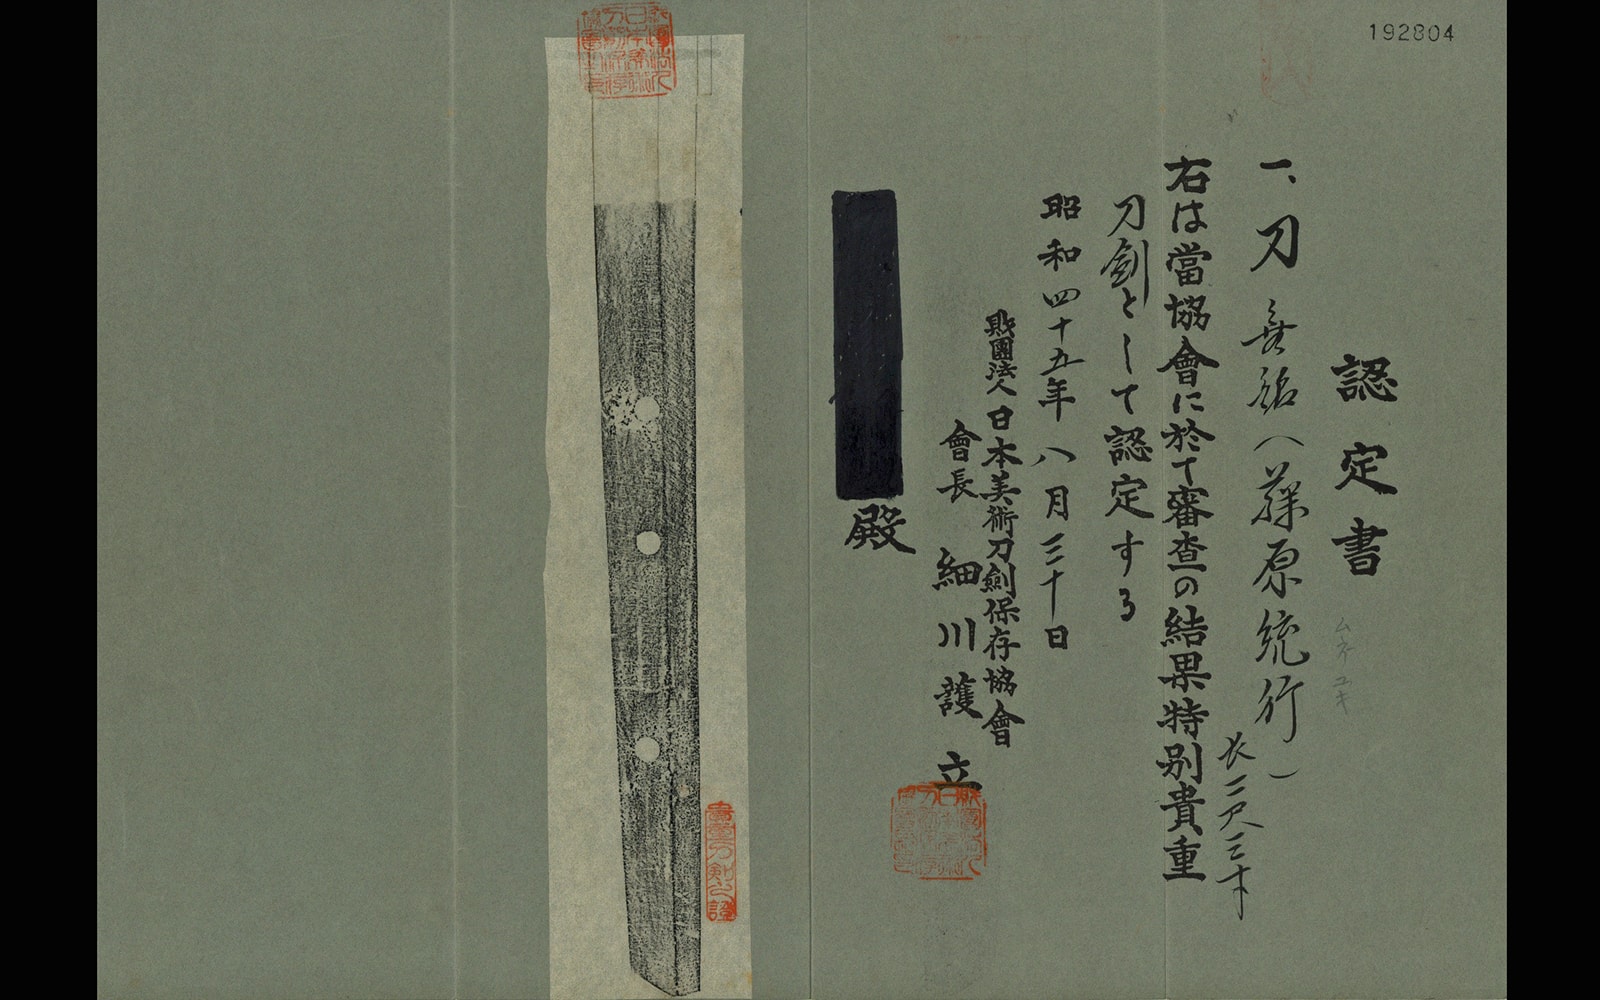 192804
認定書
一、刀 無銘(藤原統行)
ムネユキ
長二尺三寸
右は當協會に於て審査の結果特別貴重
刀剣として認定する
昭和四十五年八月三十日
財團法人日本美術刀劍保存協會
會長 細川護立
殿
貴重刀剣之證